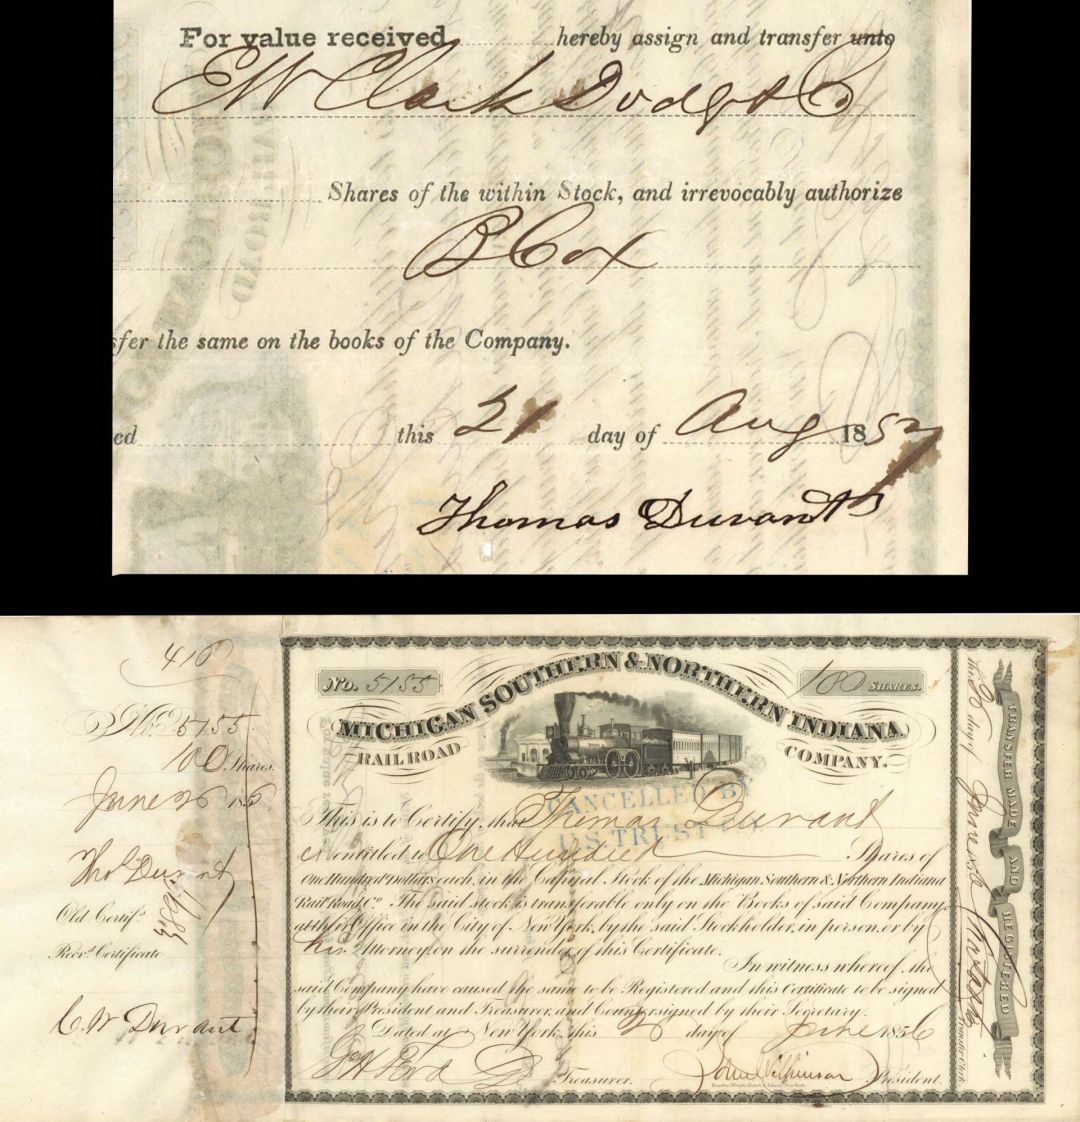 For value received hereby assign and transfer unto
E W Clark Dodge & Co
Shares of the within Stock, and irrevocably authorize
B Cox
sfer the same on the books of the Company.
ed this 21 day of Aug 1857
Thomas Durant
410
No. 5155
100 Shares.
June 26 1856
Thos Durant
Old Certifs
Recd. Certificate
C. W Durant
No. 5155
100 SHARES.
MICHIGAN SOUTHERN & NORTHERN INDIANA
RAILROAD COMPANY.
CANCELLED BY
U.S. TRUST CO
This is to Certify, that Thomas Durant
is entitled to One Hundred Shares of
One Hundred Dollars each, in the Capital Stock of the Michigan Southern & Northern Indiana
Rail Road Co. The said stock is transferable only on the Books of said Company,
at their Office in the City of New York, by the said Stockholder, in person, or by
his Attorney, on the surrender of this Certificate.
In witness whereof, the
said Company have caused the same to be Registered and this Certificate to be signed
by their President and Treasurer, and Countersigned by their Secretary.
Dated at New York, this 26 day of June 1856
Treasurer. John Wilkinson President.
This 26 day of June 1856
Transfer Clerk
TRANSFER MADE AND REGISTERED